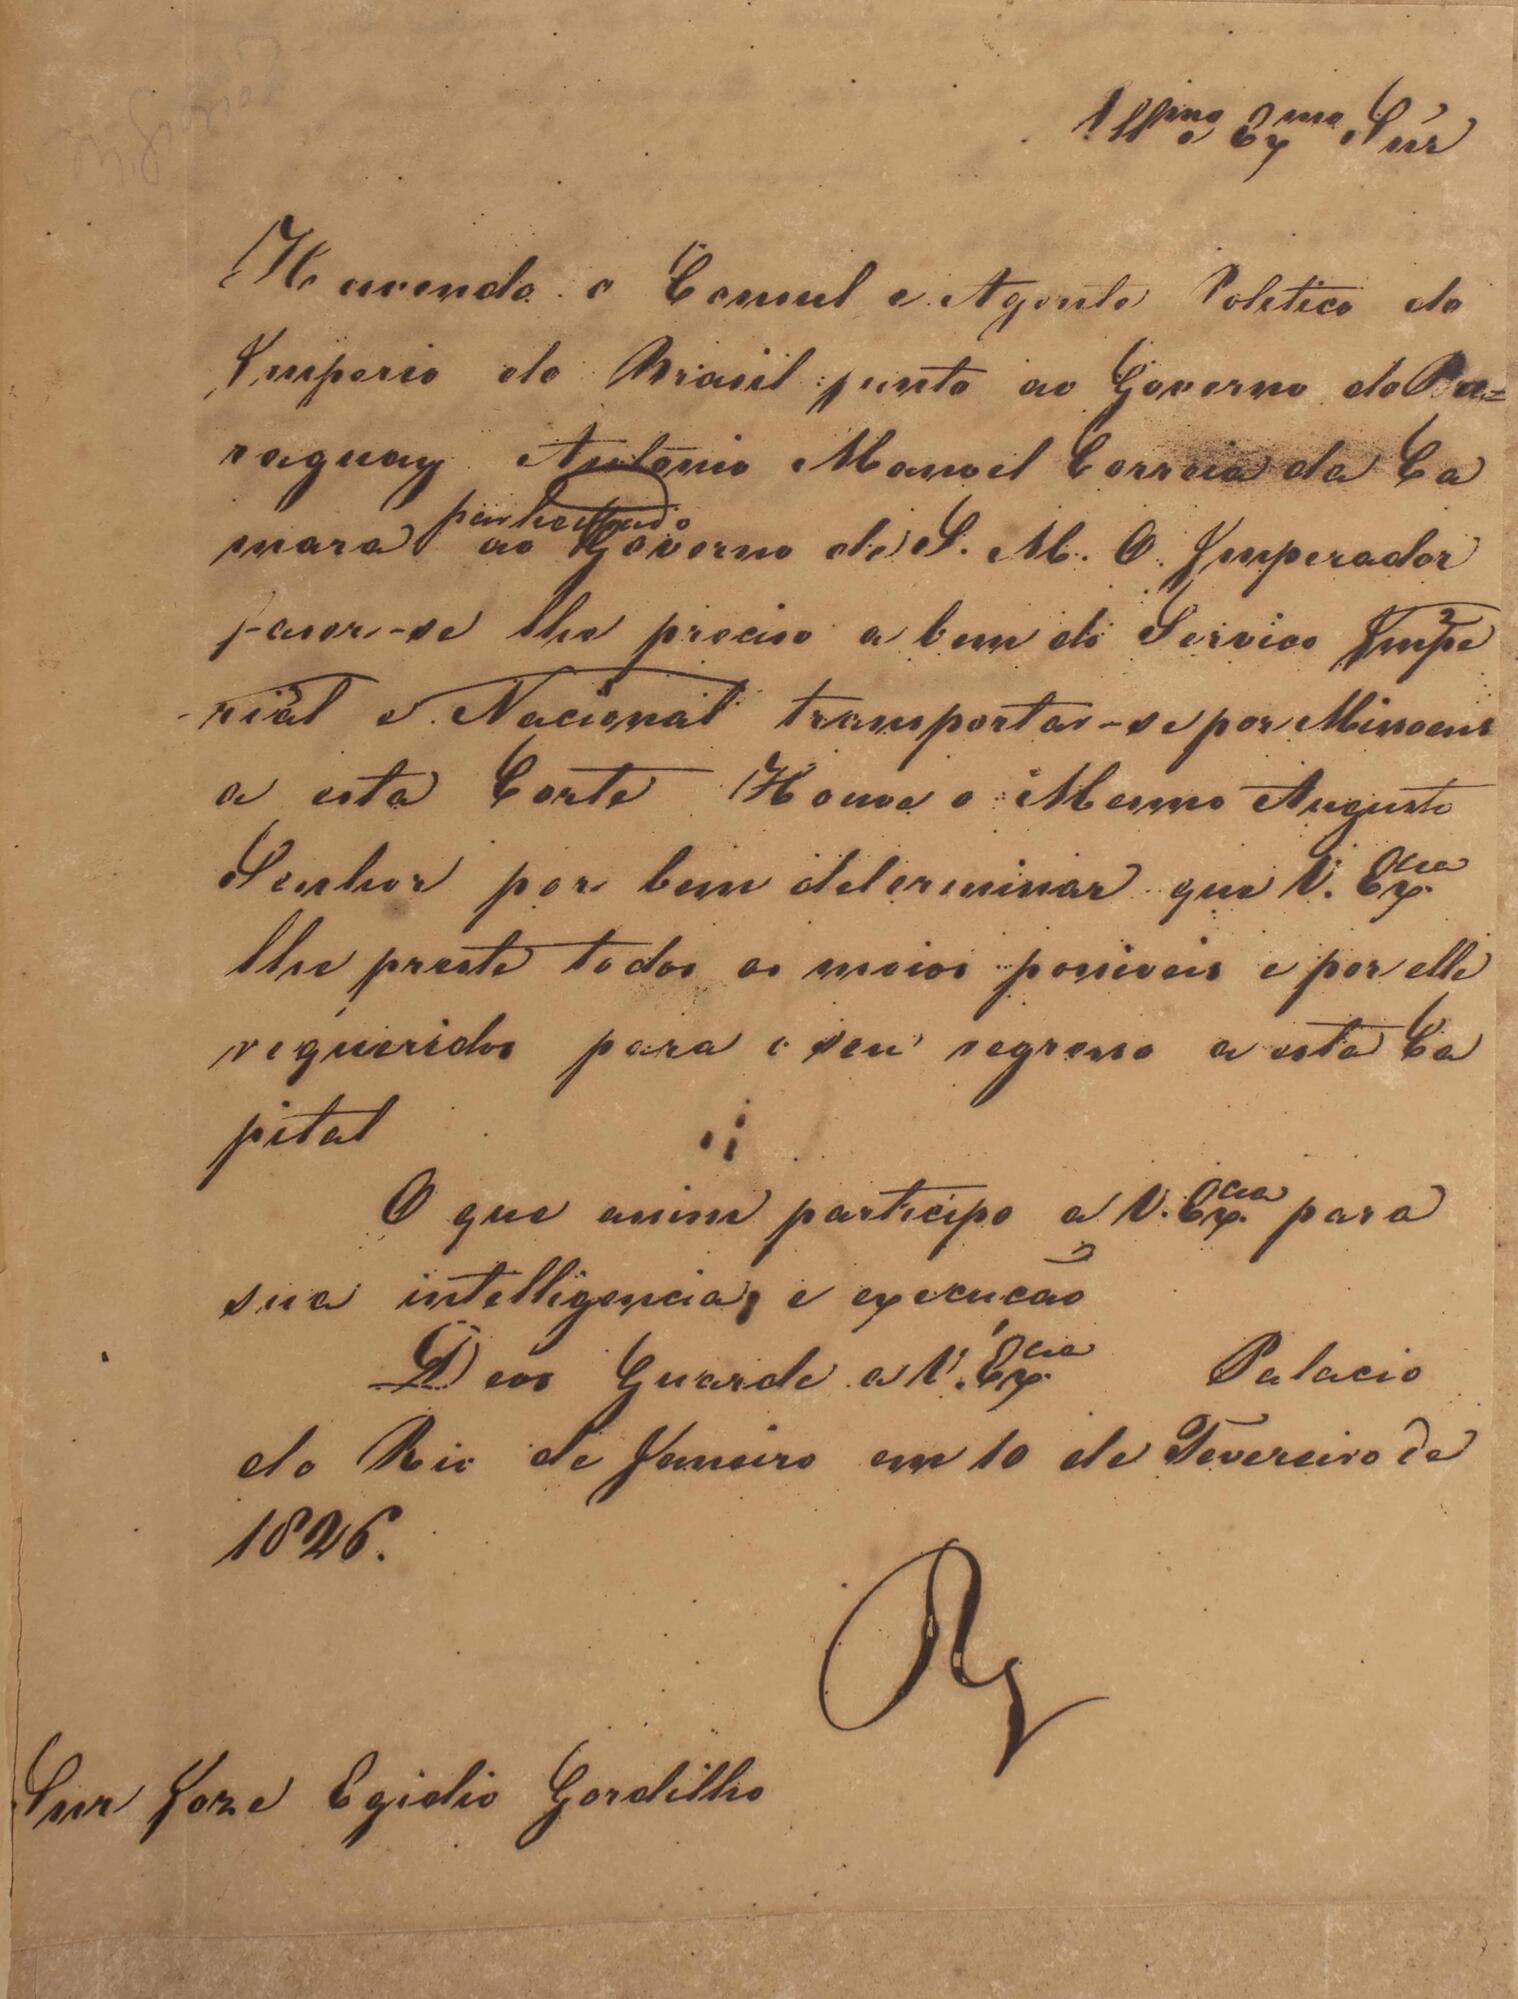 Illmo e Exmo Snr
Havendo o Consul e Agente Politico do
Imperio do Brasil junto ao Governo do Pa=
raguay Antonio Manoel Correia da Ca
participado
mara ao Governo de S. M. O Imperador
faser-se lhe preciso a bem do Servico Impe
rial e Nacional transportar-se por Missoens
a esta Corte Houve o Mesmo Augusto
Senhor por bem determinar que V. Excia
lhe preste todos os meios possiveis e por elle
requeridos para o seu regresso a esta Ca
pital
O que assim participo a V. Excia para
sua intelligencia, e execução
Deos Guarde a V. Excia Palacio
do Rio de Janeiro em 10 de Fevereiro de
1826.
Snr Joze Egidio Gordilho